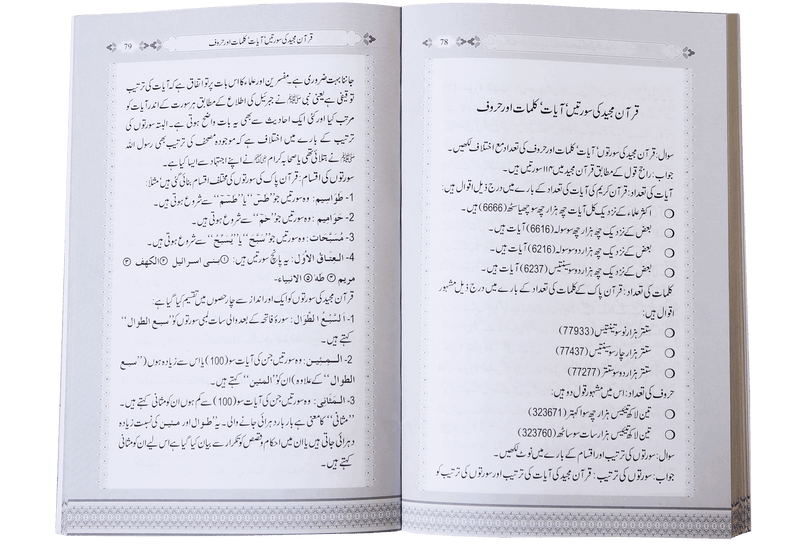 78
قرآن مجید کی سورتیں‘ آیات‘ کلمات اور حروف
سوال: قرآن مجید کی سورتوں‘ آیات‘ کلمات اور حروف کی تعداد مع اختلاف لکھیں۔
جواب: راجح قول کے مطابق قرآن مجید میں ۱۱۴ سورتیں ہیں۔
آیات کی تعداد: قرآن کریم کی آیات کی تعداد کے بارے میں درج ذیل اقوال ہیں:
اکثر علماء کے نزدیک کل آیات چھ ہزار چھ سو چھیاسٹھ (6666) ہیں۔
بعض کے نزدیک چھ ہزار چھ سو سولہ (6616) آیات ہیں۔
بعض کے نزدیک چھ ہزار دو سو سولہ (6216) آیات ہیں۔
بعض کے نزدیک چھ ہزار دو سو سینتیس (6237) آیات ہیں۔
کلمات کی تعداد: قرآن پاک کے کلمات کی تعداد کے بارے میں درج ذیل مشہور
اقوال ہیں:
ستتر ہزار نو سو تینتیس (77933)
ستتر ہزار چار سو سینتیس (77437)
ستتر ہزار دو سو ستتر (77277)
حروف کی تعداد: اس میں مشہور قول دو ہیں:
تین لاکھ تیئیس ہزار چھ سو اکہتر (323671)
تین لاکھ تیئیس ہزار سات سو ساٹھ (323760)
سوال: سورتوں کی ترتیب اور اقسام کے بارے میں نوٹ لکھیں۔
جواب: سورتوں کی ترتیب: قرآن مجید کی آیات کی ترتیب اور سورتوں کی ترتیب کو
قرآن مجید کی سورتیں‘ آیات‘ کلمات اور حروف
79
جاننا بہت ضروری ہے۔ مفسرین اور علماء کا اس بات پر تو اتفاق ہے کہ آیات کی ترتیب
توقیفی ہے یعنی نبی ﷺ نے جبرئیل کی اطلاع کے مطابق ہر سورت کے اندر آیات کو
مرتب کیا اور کئی ایک احادیث سے بھی یہ بات واضح ہوتی ہے۔ البتہ سورتوں کی
ترتیب کے بارے میں اختلاف ہے کہ موجودہ مصحف کی ترتیب بھی رسول اللہ
ﷺ نے بتلائی تھی یا صحابہ کرام نے اپنے اجتہاد سے ایسا کیا ہے۔
سورتوں کی اقسام: قرآن پاک کی سورتوں کی مختلف اقسام بنائی گئی ہیں‘ مثلا:
1- طَوَاسِیم: وہ سورتیں جو ”طٰسٓ“ یا ”طٰسٓمٓ“ سے شروع ہوتی ہیں۔
2- حَوَامِیم: وہ سورتیں جو ”حٰمٓ“ سے شروع ہوتی ہیں۔
3- مُسَبِّحَات: وہ سورتیں جو ”سَبَّحَ“ یا ”یُسَبِّحُ“ سے شروع ہوتی ہیں۔
4- العِتَاقُ الاُوَل: یہ پانچ سورتیں ہیں: ①بنی اسرائیل ②الکهف ③
مریم ④ طٰهٰ ⑤ الانبیاء۔
قرآن مجید کی سورتوں کو ایک اور انداز سے چار حصوں میں تقسیم کیا گیا ہے:
1- اَلسَّبْعُ الطُّوَال: سورۂ فاتحہ کے بعد والی سات لمبی سورتوں کو ”سبع الطوال“
کہتے ہیں۔
2- المِئِین: وہ سورتیں جن کی آیات سو (100) یا اس سے زیادہ ہوں (”سبع
الطوال“ کے علاوہ) ان کو ”المئین“ کہتے ہیں۔
3- المَثَانِی: وہ سورتیں جن کی آیات سو (100) سے کم ہوں ان کو مثانی کہتے ہیں۔
”مثانی“ کا معنی ہے بار بار دہرائی جانے والی۔ یہ طوال اور مئین کی نسبت زیادہ
دہرائی جاتی ہیں یا ان میں احکام و قصص کو تکرار سے بیان کیا گیا ہے اس لیے ان کو مثانی
کہتے ہیں۔